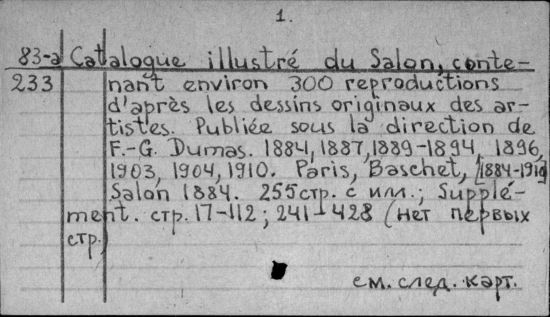 1.
83-a Catalogue illustré du Salon, conte-
233 nant environ 300 reproductions
d'après les dessins originaux des ar-
tistes. Publiée sous la direction de
F.-G. Dumas. 1884, 1887, 1889-1894, 1896,
1903, 1904, 1910. Paris, Baschet, [1884-1910]
Salon 1884. 255стр. с илл.; Supplé-
ment. стр. 17-112; 241-428 (нет первых
стр.)
см. след. карт.